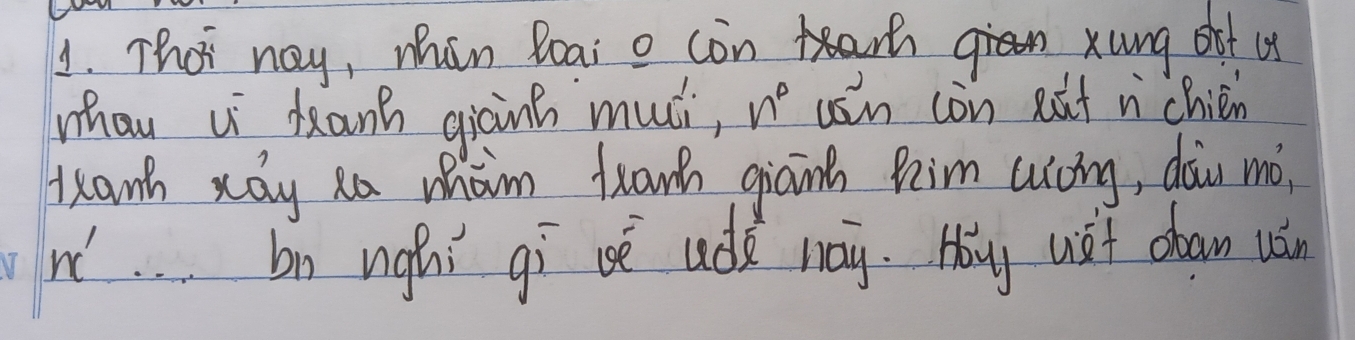 1. Thời nay, nhân loại o còn tranh gian xung đột vs
nhau vì tranh giành muối, nº vẫn còn rất n chiến
tranh xảy ra nhằm tranh giành kim cương, dầu mỏ,
nc ... bn nghĩ gì về vđề này. Hãy viết đoạn văn